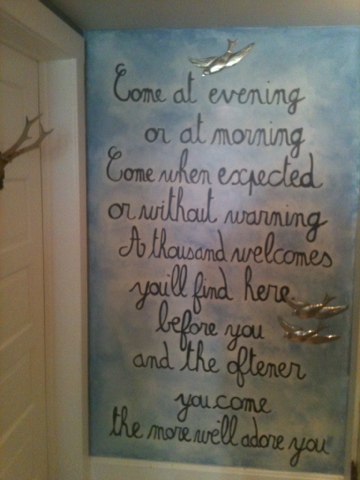 Come at evening
or at morning
Come when expected
or without warning
A thousand welcomes
you'll find here
before you
and the oftener
you come
the more we'll adore you